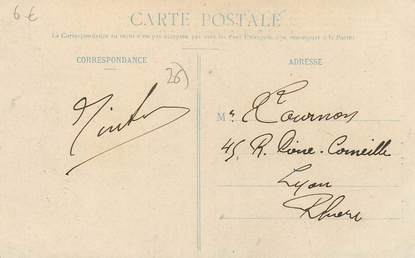 6 €
CARTE POSTALE
La Correspondance au verso n'est pas acceptée par tous les Pays Étrangers, (se renseigner à la Poste)
CORRESPONDANCE
ADRESSE
26)
Mr Tournon
45, R. Corneille
Lyon
Rhône